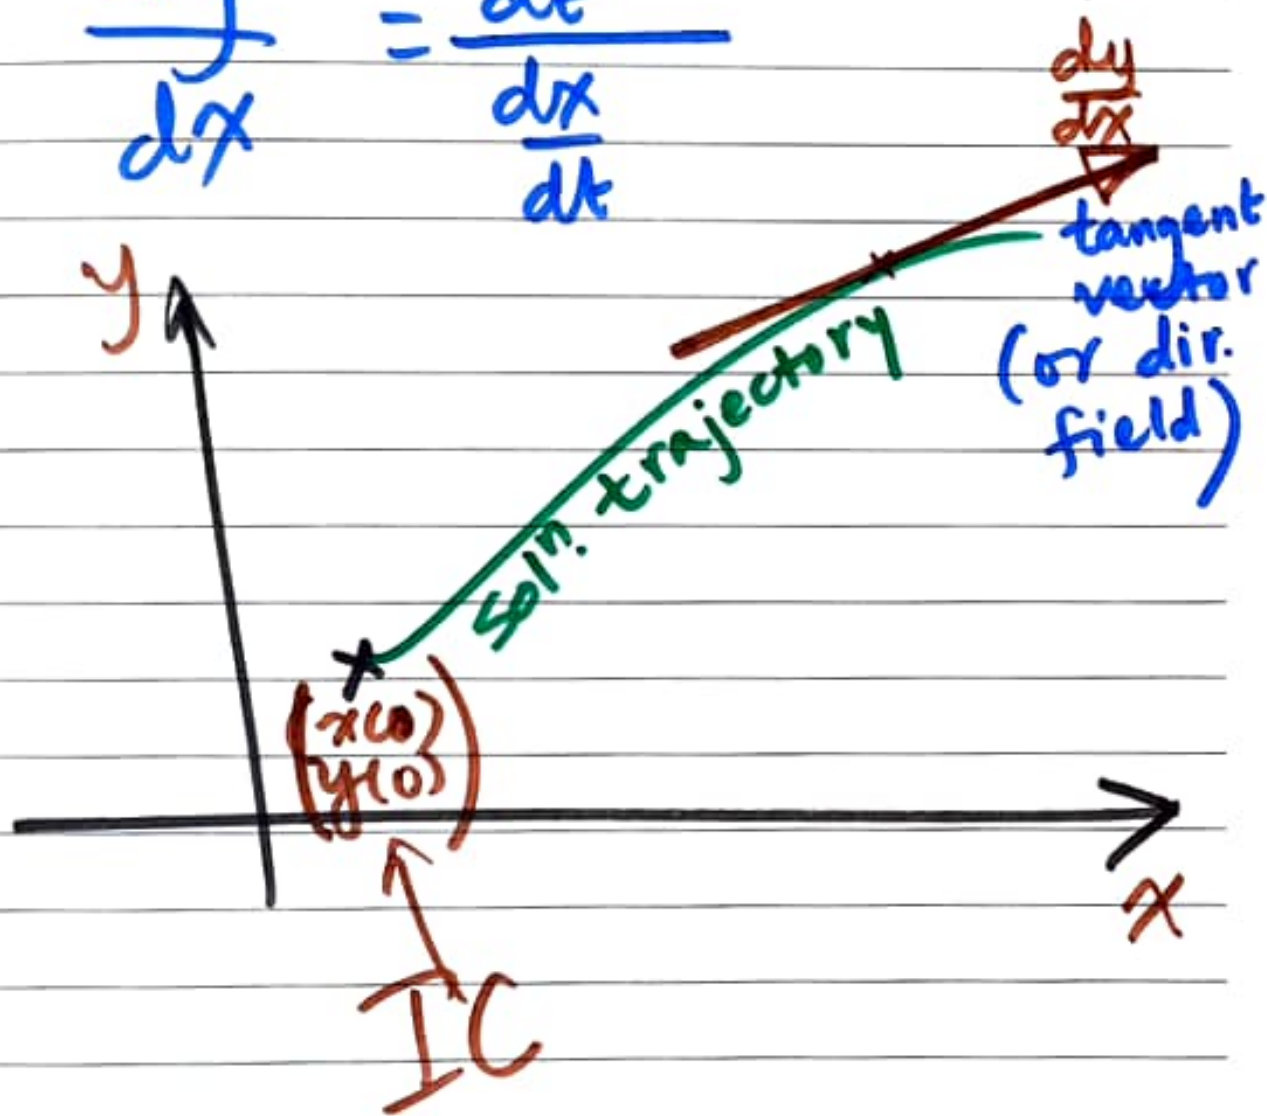 dx
= dt
dx
dt
dy
dx
y
tangent
vector
(or dir.
field)
soln. trajectory
(x(0)
y(0))
x
IC